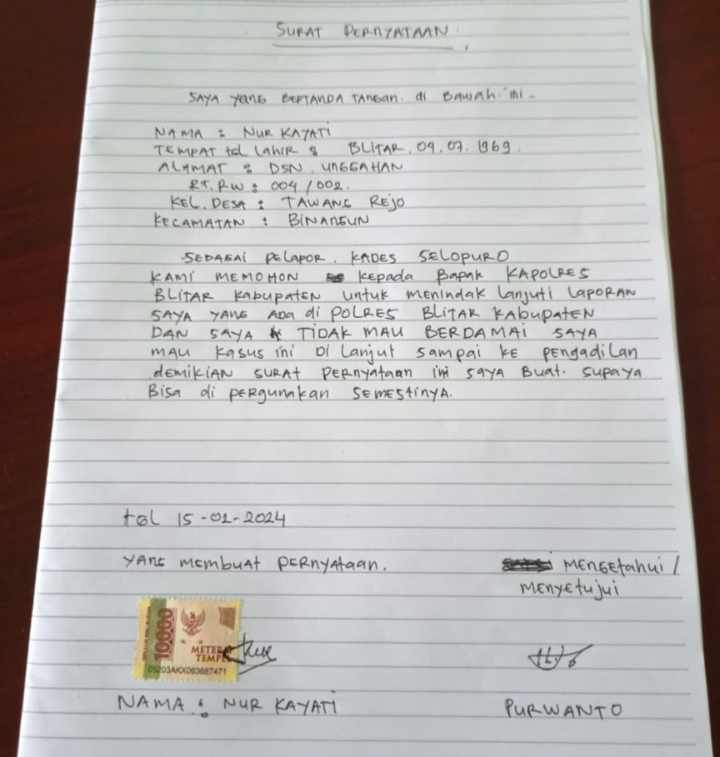 SURAT PERNYATAAN.
SAYA YANG BERTANDA TANGAN. di BAWAH. ini -
NAMA : NUR KAYATI
TEMPAT tGL LAHIR : BLITAR. 04. 07. 1969.
ALAMAT : DSN. UNGGAHAN
RT. RW : 004 / 002.
KEL. DESA : TAWANG REJO
KECAMATAN : BINANGUN
SEBAGAI PELAPOR. KADES SELOPURO
KAMI MEMOHON KEPADA BAPAK KAPOLRES
BLITAR KABUPATEN UNTUK MENINDAK LANJUTI LAPORAN
SAYA YANG ADA di POLRES BLITAR KABUPATEN
DAN SAYA TIDAK MAU BERDAMAI SAYA
MAU KASUS ini Di LANJUT SAMPAI KE PENGADILAN
DEMIKIAN SURAT PERNYATAAN ini SAYA BUAT. SUPAYA
BISA di PERGUNAKAN SEMESTINYA.
tGL 15-01-2024
YANG MEMBUAT PERNYATAAN.
MENGETAHUI /
MENYETUJUI
10000
METER
TEMP
NAMA : NUR KAYATI
PURWANTO